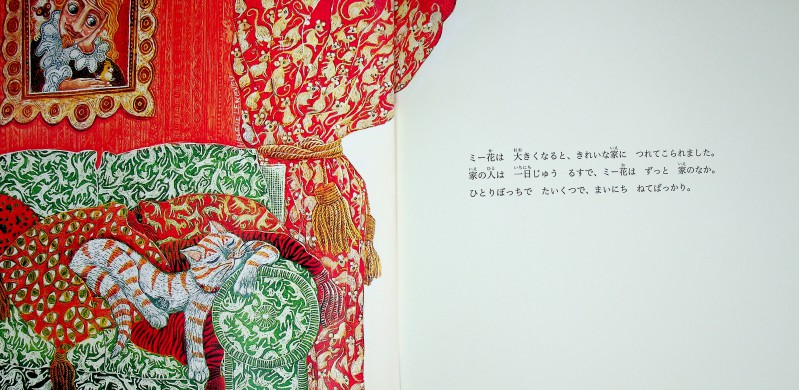 ミー花は　大きくなると、きれいな家に　つれてこられました。
家の人は　一日じゅう　るすで、ミー花は　ずっと　家のなか。
ひとりぼっちで　たいくつで、まいにち　ねてばっかり。